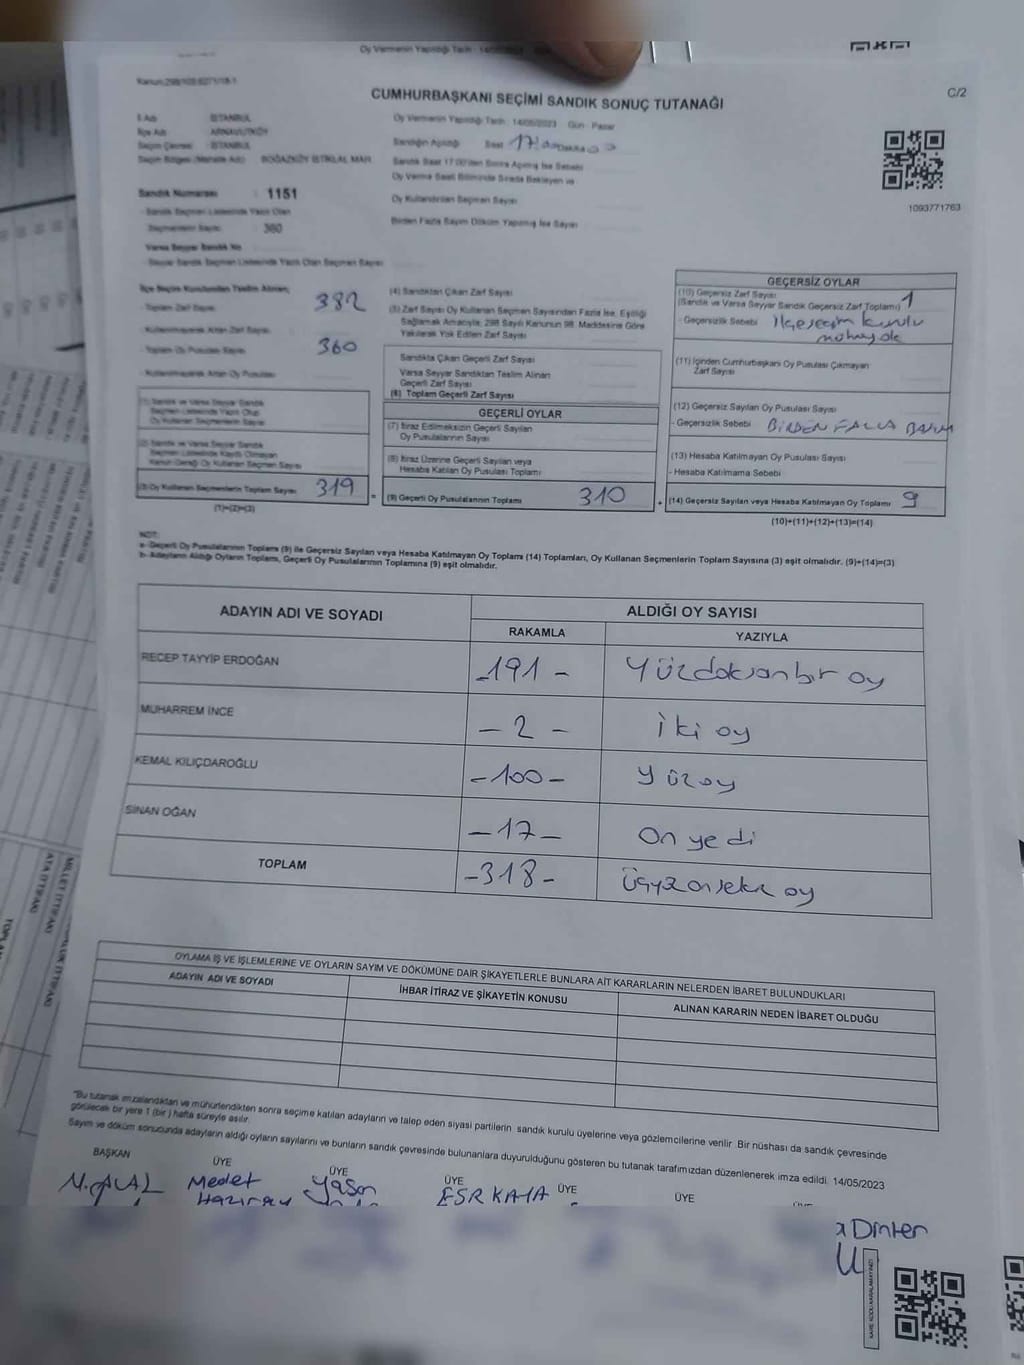 Oy Vermenin Yapıldığı Tarih : 14/05/2023
Kanun:298/103:6271/18-1
C/2
CUMHURBAŞKANI SEÇİMİ SANDIK SONUÇ TUTANAĞI
İl Adı : İSTANBUL
İlçe Adı : ARNAVUTKÖY
Seçim Çevresi : İSTANBUL
Seçim Bölgesi (Mahalle Adı) : BOĞAZKÖY İSTİKLAL MAH.
Oy Vermenin Yapıldığı Tarih : 14/05/2023 Gün : Pazar
Sandığın Açıldığı Saat 17 Dakika
Sandık Saat 17:00'den Sonra Açılmış İse Sebebi
Oy Verme Saati Bitiminde Sırada Bekleyen ve
Oy Kullandırılan Seçmen Sayısı
Birden Fazla Sayım Döküm Yapılmış İse Sayısı
1093771763
Sandık Numarası : 1151
- Sandık Seçmen Listesinde Yazılı Olan
Seçmenlerin Sayısı : 360
Varsa Seyyar Sandık No
- Seyyar Sandık Seçmen Listesinde Yazılı Olan Seçmen Sayısı
İlçe Seçim Kurulundan Teslim Alınan;
- Toplam Zarf Sayısı 382
- Kullanılmayarak Artan Zarf Sayısı
- Toplam Oy Pusulası Sayısı 360
- Kullanılmayarak Artan Oy Pusulası
(1) Sandık ve Varsa Seyyar Sandık
Seçmen Listesinde Yazılı Olup
Oy Kullanan Seçmenlerin Sayısı
(2) Sandık ve Varsa Seyyar Sandık
Seçmen Listesinde Kaydı Olmayan
Kanun Gereği Oy Kullanan Seçmen Sayısı
(3) Oy Kullanan Seçmenlerin Toplam Sayısı 319
(1)+(2)=(3)
(4) Sandıktan Çıkan Zarf Sayısı
(5) Zarf Sayısı Oy Kullanan Seçmen Sayısından Fazla İse, Eşitliği
Sağlamak Amacıyla; 298 Sayılı Kanunun 98. Maddesine Göre
Yakılarak Yok Edilen Zarf Sayısı
Sandıkta Çıkan Geçerli Zarf Sayısı
Varsa Seyyar Sandıktan Teslim Alınan
Geçerli Zarf Sayısı
(6) Toplam Geçerli Zarf Sayısı
GEÇERLİ OYLAR
(7) İtiraz Edilmeksizin Geçerli Sayılan
Oy Pusulalarının Sayısı
(8) İtiraz Üzerine Geçerli Sayılan veya
Hesaba Katılan Oy Pusulası Toplamı
(9) Geçerli Oy Pusulalarının Toplamı 310
GEÇERSİZ OYLAR
(10) Geçersiz Zarf Sayısı
(Sandık ve Varsa Seyyar Sandık Geçersiz Zarf Toplamı) 1
- Geçersizlik Sebebi ilçe seçim kurulu
(11) İçinden Cumhurbaşkanı Oy Pusulası Çıkmayan
Zarf Sayısı
(12) Geçersiz Sayılan Oy Pusulası Sayısı
- Geçersizlik Sebebi BİRDEN FAZLA
(13) Hesaba Katılmayan Oy Pusulası Sayısı
- Hesaba Katılmama Sebebi
(14) Geçersiz Sayılan veya Hesaba Katılmayan Oy Toplamı 9
(10)+(11)+(12)+(13)=(14)
NOT:
a- Geçerli Oy Pusulalarının Toplamı (9) ile Geçersiz Sayılan veya Hesaba Katılmayan Oy Toplamı (14) Toplamları, Oy Kullanan Seçmenlerin Toplam Sayısına (3) eşit olmalıdır. (9)+(14)=(3)
b- Adayların Aldığı Oyların Toplamı, Geçerli Oy Pusulalarının Toplamına (9) eşit olmalıdır.
ADAYIN ADI VE SOYADI
ALDIĞI OY SAYISI
RAKAMLA YAZIYLA
RECEP TAYYİP ERDOĞAN -191- Yüzdoksanbir oy
MUHARREM İNCE -2- iki oy
KEMAL KILIÇDAROĞLU -100- yüz oy
SİNAN OĞAN -17- On yedi
TOPLAM -318- Üçyüzonsekiz oy
OYLAMA İŞ VE İŞLEMLERİNE VE OYLARIN SAYIM VE DÖKÜMÜNE DAİR ŞİKAYETLERLE BUNLARA AİT KARARLARIN NELERDEN İBARET BULUNDUKLARI
ADAYIN ADI VE SOYADI
İHBAR İTİRAZ VE ŞİKAYETİN KONUSU
ALINAN KARARIN NEDEN İBARET OLDUĞU
"Bu tutanak imzalandıktan ve mühürlendikten sonra seçime katılan adayların ve talep eden siyasi partilerin sandık kurulu üyelerine veya gözlemcilerine verilir. Bir nüshası da sandık çevresinde
görülecek bir yere 1 (bir) hafta süreyle asılır.
Sayım ve döküm sonucunda adayların aldığı oyların sayılarını ve bunların sandık çevresinde bulunanlara duyurulduğunu gösteren bu tutanak tarafımızdan düzenlenerek imza edildi. 14/05/2023
BAŞKAN ÜYE ÜYE ÜYE ÜYE ÜYE
Medet ESR KAYA
KARE KODU KARALAMAYINIZ!
MİLLET İTTİFAKI
ATA İTTİFAKI